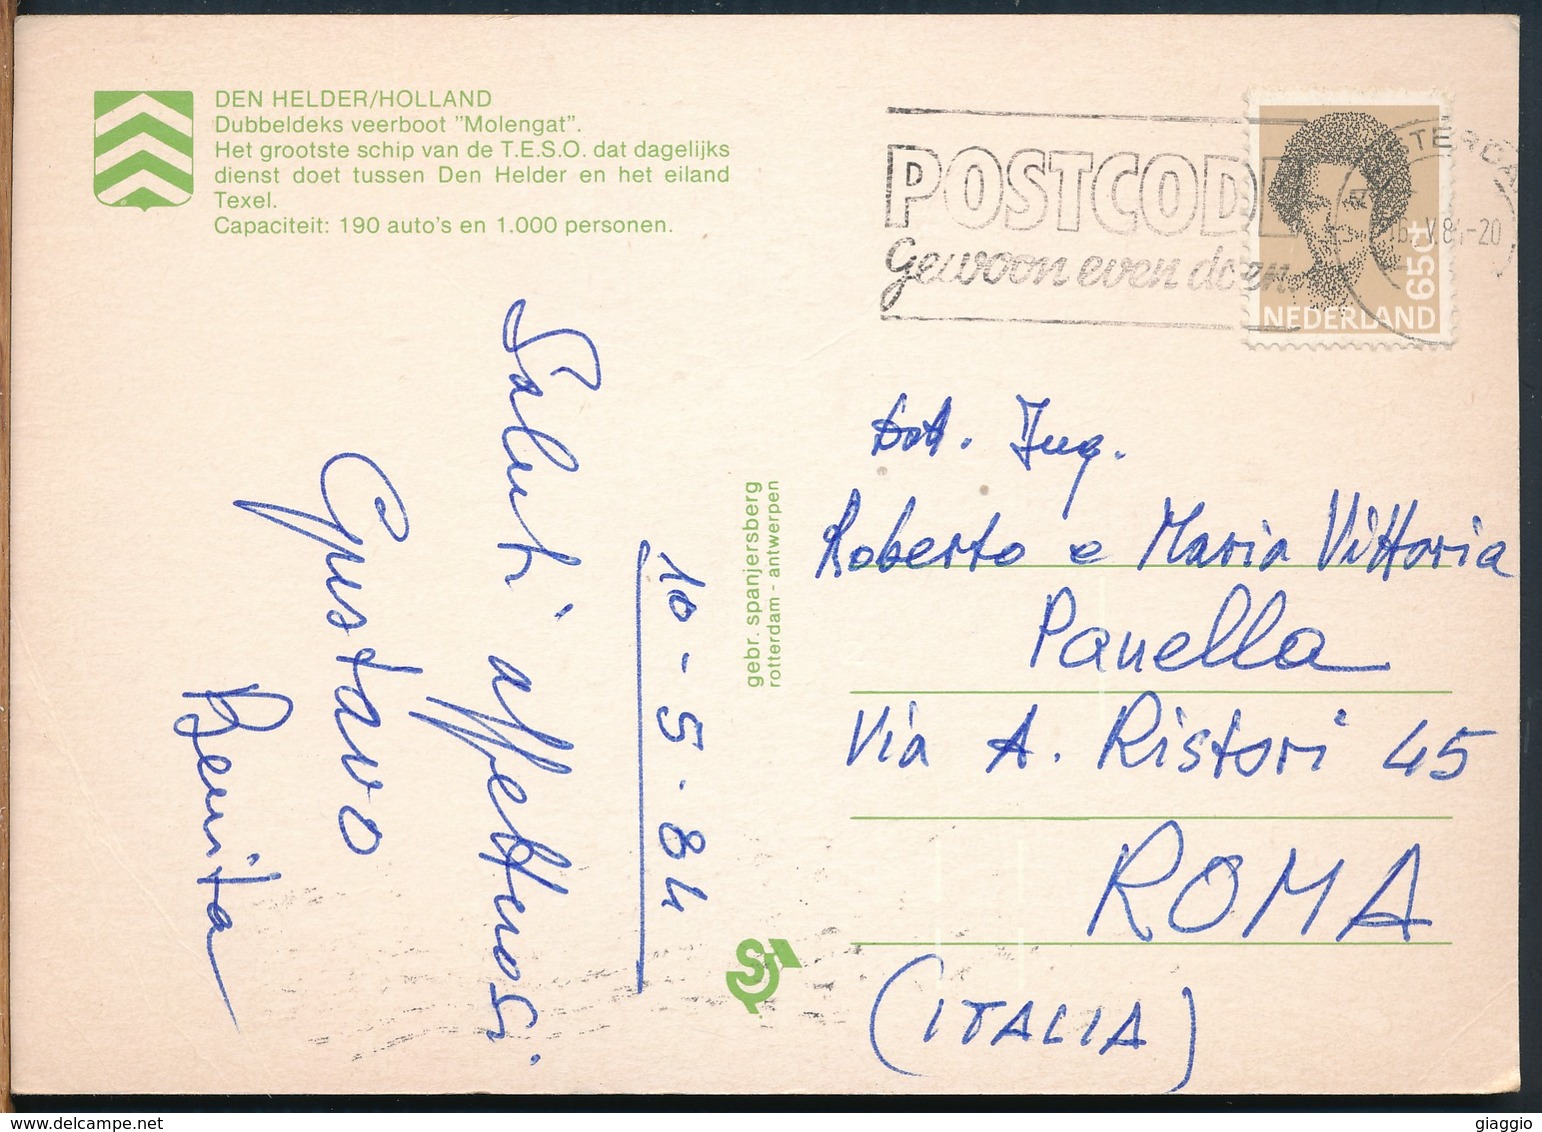 DEN HELDER/HOLLAND
Dubbeldeks veerboot "Molengat".
Het grootste schip van de T.E.S.O. dat dagelijks
dienst doet tussen Den Helder en het eiland
Texel.
Capaciteit: 190 auto's en 1.000 personen.
POSTCODE
gewoon even doen
65ct
NEDERLAND
10-5.84
Saluti affettuosi
Gustavo
Benita
gebr. spanjersberg
rotterdam - antwerpen
Dott. Ing.
Roberto e Maria Vittoria
Panella
Via A. Ristori 45
ROMA
(ITALIA)
giaggio